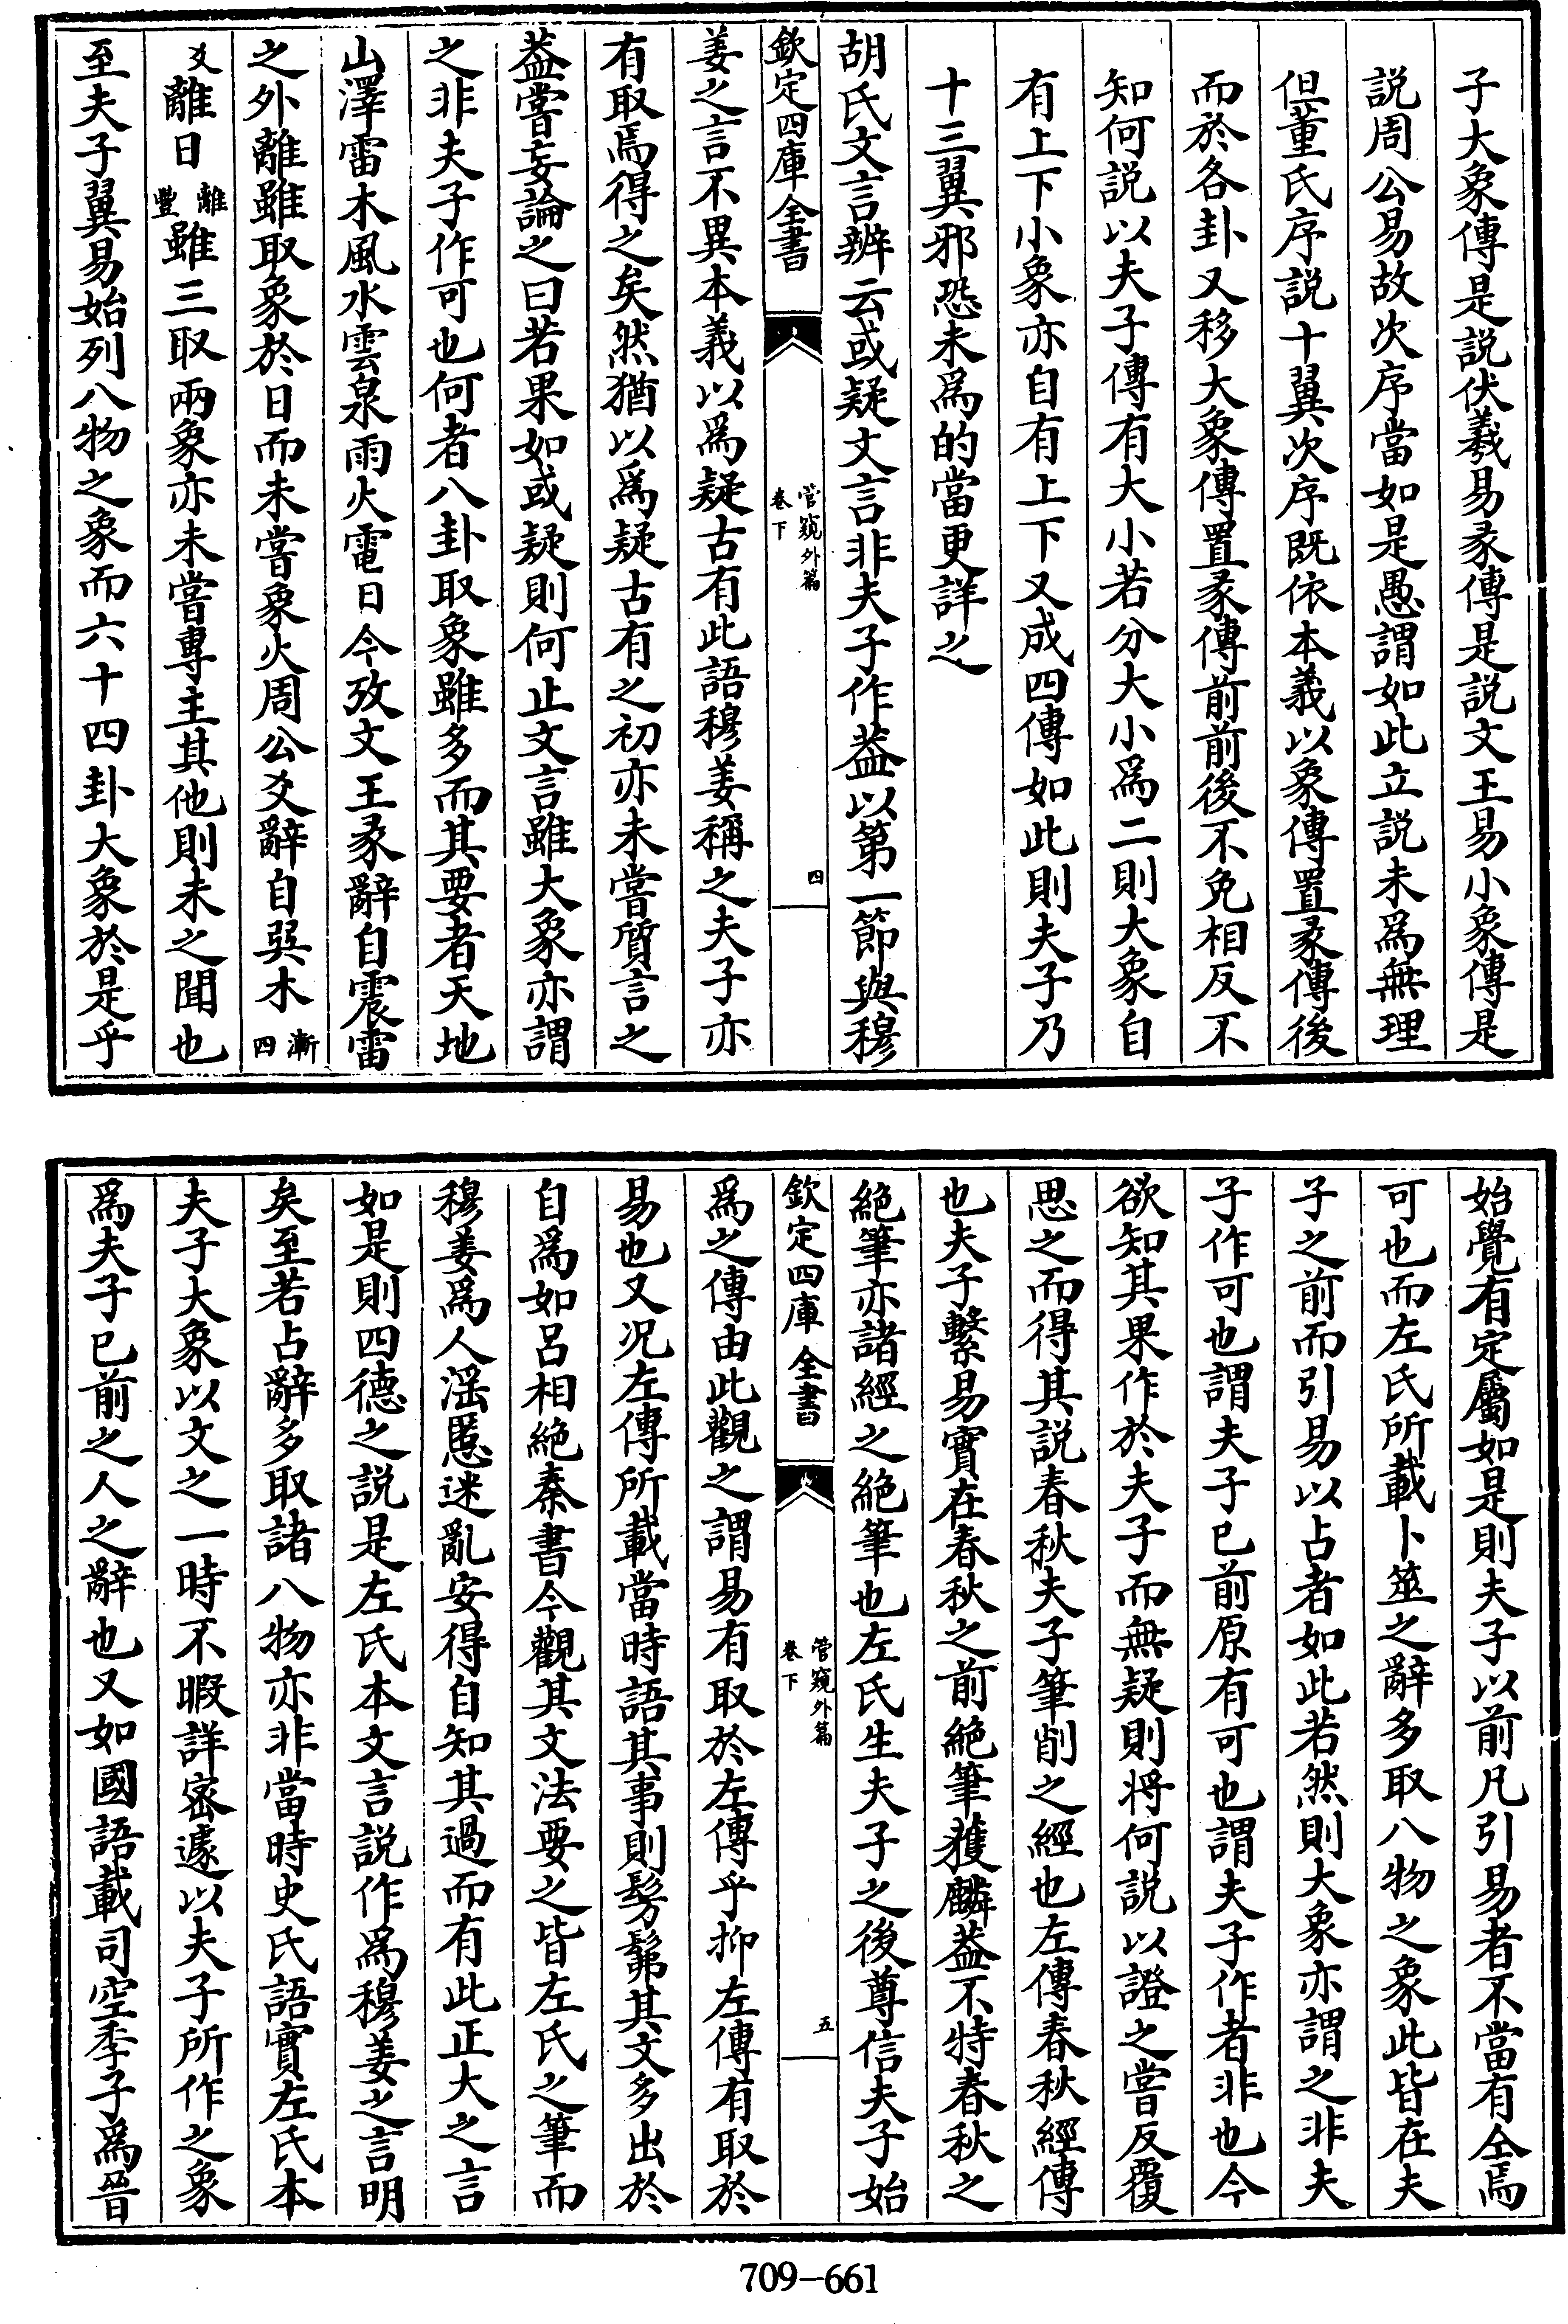 子大象傳是説伏羲易彖傳是説文王易小象傳是
説周公易故次序當如是愚謂如此立説未為無理
但董氏序説十翼次序既依本義以象傳置彖傳後
而於各卦又移大象傳置彖傳前前後不免相反不
知何説以夫子傳有大小若分大小為二則大象自
有上下小象亦自有上下又成四傳如此則夫子乃
十三翼邪恐未為的當更詳之
胡氏文言辨云或疑文言非夫子作葢以第一節與穆
欽定四庫全書
管窺外篇
卷下
四
姜之言不異本義以為疑古有此語穆姜稱之夫子亦
有取焉得之矣然猶以為疑古有之初亦未嘗質言之
葢嘗妄論之曰若果如或疑則何止文言雖大象亦謂
之非夫子作可也何者八卦取象雖多而其要者天地
山澤雷木風水雲泉雨火電日今攷文王彖辭自震雷
之外離雖取象於日而未嘗象火周公爻辭自巽木漸四
爻離日離豐雖三取兩象亦未嘗專主其他則未之聞也
至夫子翼易始列八物之象而六十四卦大象於是乎
始覺有定屬如是則夫子以前凡引易者不當有仝焉
可也而左氏所載卜筮之辭多取八物之象此皆在夫
子之前而引易以占者如此若然則大象亦謂之非夫
子作可也謂夫子已前原有可也謂夫子作者非也今
欲知其果作於夫子而無疑則將何説以證之嘗反覆
思之而得其説春秋夫子筆削之經也左傳春秋經傳
也夫子繫易實在春秋之前絶筆獲麟葢不特春秋之
絶筆亦諸經之絶筆也左氏生夫子之後尊信夫子始
欽定四庫全書
管窺外篇
卷下
五
為之傳由此觀之謂易有取於左傳乎抑左傳有取於
易也又况左傳所載當時語其事則髣髴其文多出於
自為如呂相絶秦書今觀其文法要之皆左氏之筆而
穆姜為人滛慝迷亂安得自知其過而有此正大之言
如是則四德之説是左氏本文言説作為穆姜之言明
矣至若占辭多取諸八物亦非當時史氏語實左氏本
夫子大象以文之一時不暇詳宻遽以夫子所作之象
為夫子已前之人之辭也又如國語載司空季子為晉
709-661